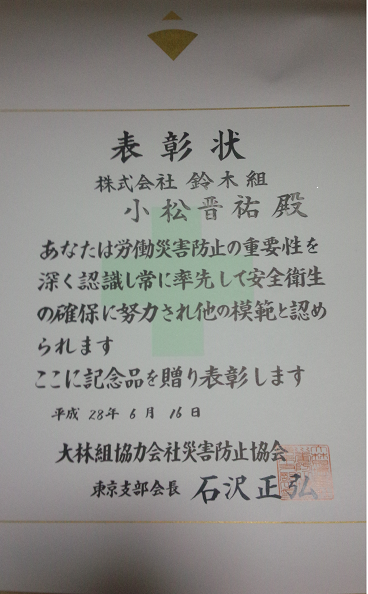 表彰状
株式会社 鈴木組
小松晋祐 殿
あなたは労働災害防止の重要性を
深く認識し常に率先して安全衛生
の確保に努力され他の模範と認め
られます
ここに記念品を贈り表彰します
平成 28年 6月 16日
大林組協力会社災害防止協会
東京支部会長 石沢正弘